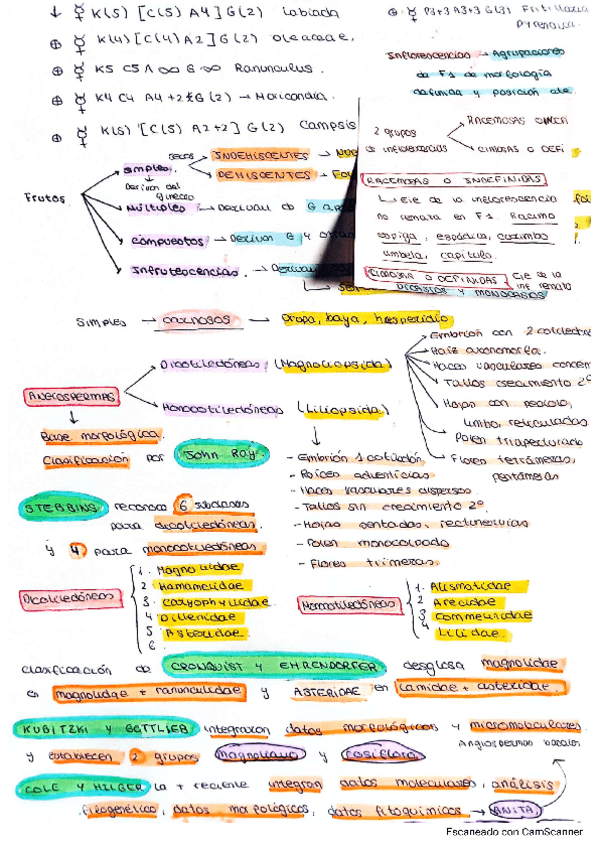 ↓ ☿ K(5) [C(5) A4] G(2) Labiada
⊕ ☿ P3+3 A3+3 G(3) Fritillaria Pyrenaica.
⊕ ☿ K(4) [C(4) A2] G(2) oleaceae.
⊕ ☿ K5 C5 A∞ G∞ Ranunculus.
⊕ ☿ K4 C4 A4+2 G(2) → Moricandia.
⊕ ☿ K(5) [C(5) A2+2] G(2) Campsis
Inflorescencias → Agrupaciones
de Fs de morfología
definida y posición
2 grupos
inflorescencias
RACEMOSAS
CIMOSAS O DEFI
RACEMOSAS O INDEFINIDAS
↳ Eje de la inflorescencia
no remata en F. Racimo
espiga, espádice, corimbo
umbela, capítulo.
CIMOSAS O DEFINIDAS Eje de la
inf remata
DICASIOS Y MONOCASIOS
Frutos
Simples secos INDEHISCENTES →
DEHISCENTES →
↓
Derivan del
gineceo
Múltiples → Derivan de G
compuestos → Derivan G y
Infrutecencias. →
Simples → carnosos → Drupa, baya, hesperidio
ANGIOSPERMAS
Dicotiledóneas (Magnoliopsida)
Monocotiledóneas (Liliopsida)
Embrión con 2 cotiledones
Raíz axonomorfa.
Haces vasculares
Tallos crecimiento 2º
Hojas con peciolo,
limbo, reticuladas
Polen triaperturado
Flores tetrámeras,
pentámeras
↓
Base morfológica.
Clasificación por John Ray.
- Embrión 1 cotiledón
- Raíces adventicias
- Haces vasculares dispersos
- Tallos sin crecimiento 2º
- Hojas sentadas, rectinervias
- Polen monocolpado
- Flores trímeras.
STEBBINS reconoce 6 subclases
para dicotiledóneas
y 4 para monocotiledóneas
Dicotiledóneas
1. Magnoliidae
2 Hamamelidae
3. Caryophyllidae
4 Dillenidae
5 Asteridae
6.
Monocotiledóneas
1. Alismatidae
2 Arecidae
3 Commelinidae
4 Liliidae.
clasificación de CRONQUIST Y EHRENDORFER. desglosa magnolidae
en magnolidae + ranunculidae y ASTERIDAE en lamidae + asteridae.
KUBITZKI Y GOTTLIEB integraron datos morfológicos y micromoleculares
y establecen 2 grupos magnoliano y rosiflora
Angiospermas basales
COLE Y HILGER la + reciente integran datos moleculares, análisis
filogenético, datos morfológicos, datos fitoquímicos → ANITA.
Escaneado con CamScanner